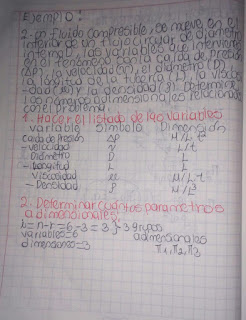 Ejemplo:
2- un fluido compresible, se mueve en el
interior de un flujo circular de diámetro
interno, las variables que intervienen
en el fenómeno son la caída de presión
(ΔP), la velocidad (v), el diámetro (D),
la longitud de la tubería (L), la viscosi-
dad (μ) y la densidad (ρ). Determine
los números adimensionales relacionados
con el problema.
1. Hacer el listado de las variables
variable símbolo Dimensión
Caída de Presión ΔP
- velocidad v L/t
- Diámetro D L
- Longitud L L
Viscosidad μ
- Densidad ρ
2. Determinar cuántos parámetros
adimensionales
= n-r = 6-3 = 3 3 grupos
variables=6 adimensionales
dimensiones=3 π1, π2, π3